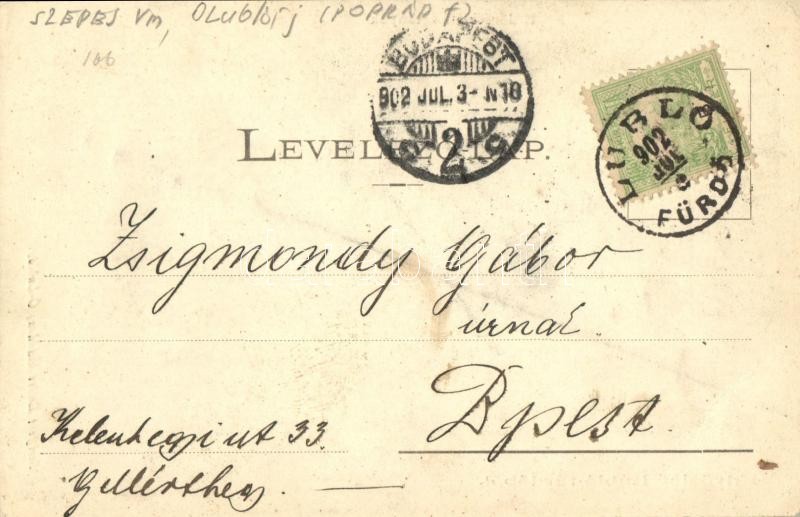 SZEPES Vm, Olublói (POPRÁD f)
106
BUDAPEST
902 JUL. 3 - N 10
2
LEVELEZŐ-LAP.
LUBLÓ
902
JUL
FÜRDŐ
Zsigmondy Gábor
úrnak
Bpest.
Kelenhegyi ut 33.
Gellérthegy